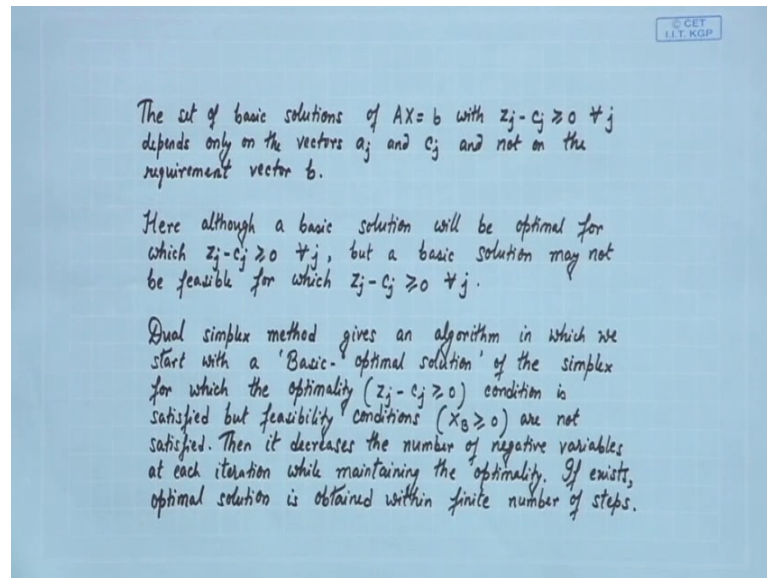 © CET
I.I.T. KGP
The set of basic solutions of AX = b with zj - cj ⩾ 0 ∀ j
depends only on the vectors aj and cj and not on the
requirement vector b.
Here although a basic solution will be optimal for
which zj - cj ⩾ 0 ∀ j, but a basic solution may not
be feasible for which zj - cj ⩾ 0 ∀ j.
Dual simplex method gives an algorithm in which we
start with a 'Basic - optimal solution' of the simplex
for which the optimality (zj - cj ⩾ 0) condition is
satisfied but feasibility conditions (XB ⩾ 0) are not
satisfied. Then it decreases the number of negative variables
at each iteration while maintaining the optimality. If exists,
optimal solution is obtained within finite number of steps.